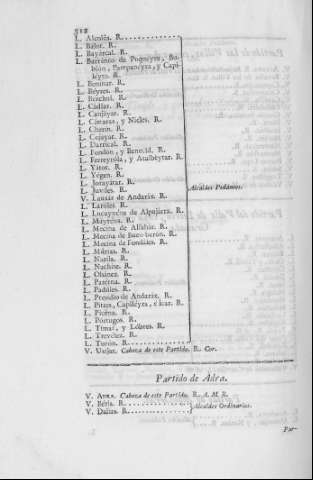 312
L. Alcoléa. R.
L. Balor. R.
L. Bayárcal. R.
L. Barránco de Poquéyra, Bu-
bión, Pampanéyra, y Capi-
léyra. R.
L. Benínar. R.
L. Bérjes. R.
L. Bérchul. R.
L. Cádiar. R.
L. Canjáyar. R.
L. Cástaras, y Nieles. R.
L. Cherín. R.
L. R.
L. Darrical. R.
L. Fondón, y Benecíd. R.
L. Ferreyróla, y Atalbéytar. R.
L. Yátor. R.
L. Yégen. R.
L. Jorayátar. R.
L. Juviles. R.
V. Laujár de Andaráx. R.
L. Laróles. R.
L. Lucaynéna de Alpujárra. R.
L. Mayréna. R.
L. Mecína de Alfahár. R.
L. Mecína de Buen-barón. R.
L. Mecína de Fondáles. R.
L. Múrtas. R.
L. Narila. R.
L. Nechíte. R.
L. Ohánez. R.
L. Patérna. R.
L. Padúles. R.
L. Presidio de Andaráx. R.
L. Pitres, Capiléyra, é Icar. R.
L. Picéna. R.
L. Pórtugos. R.
L. Timár, y Lóbras. R.
L. Trevélez. R.
L. Turón. R.
Alcaldes Pedáneos.
V. Uxíjar. Cabeza de este Partido. R. Cor.
Partido de Adra.
V. Adra. Cabeza de este Partido. R. A. M. R.
V. Bérja. R.
V. Dalías. R.
Alcaldes Ordinarios.
Par-